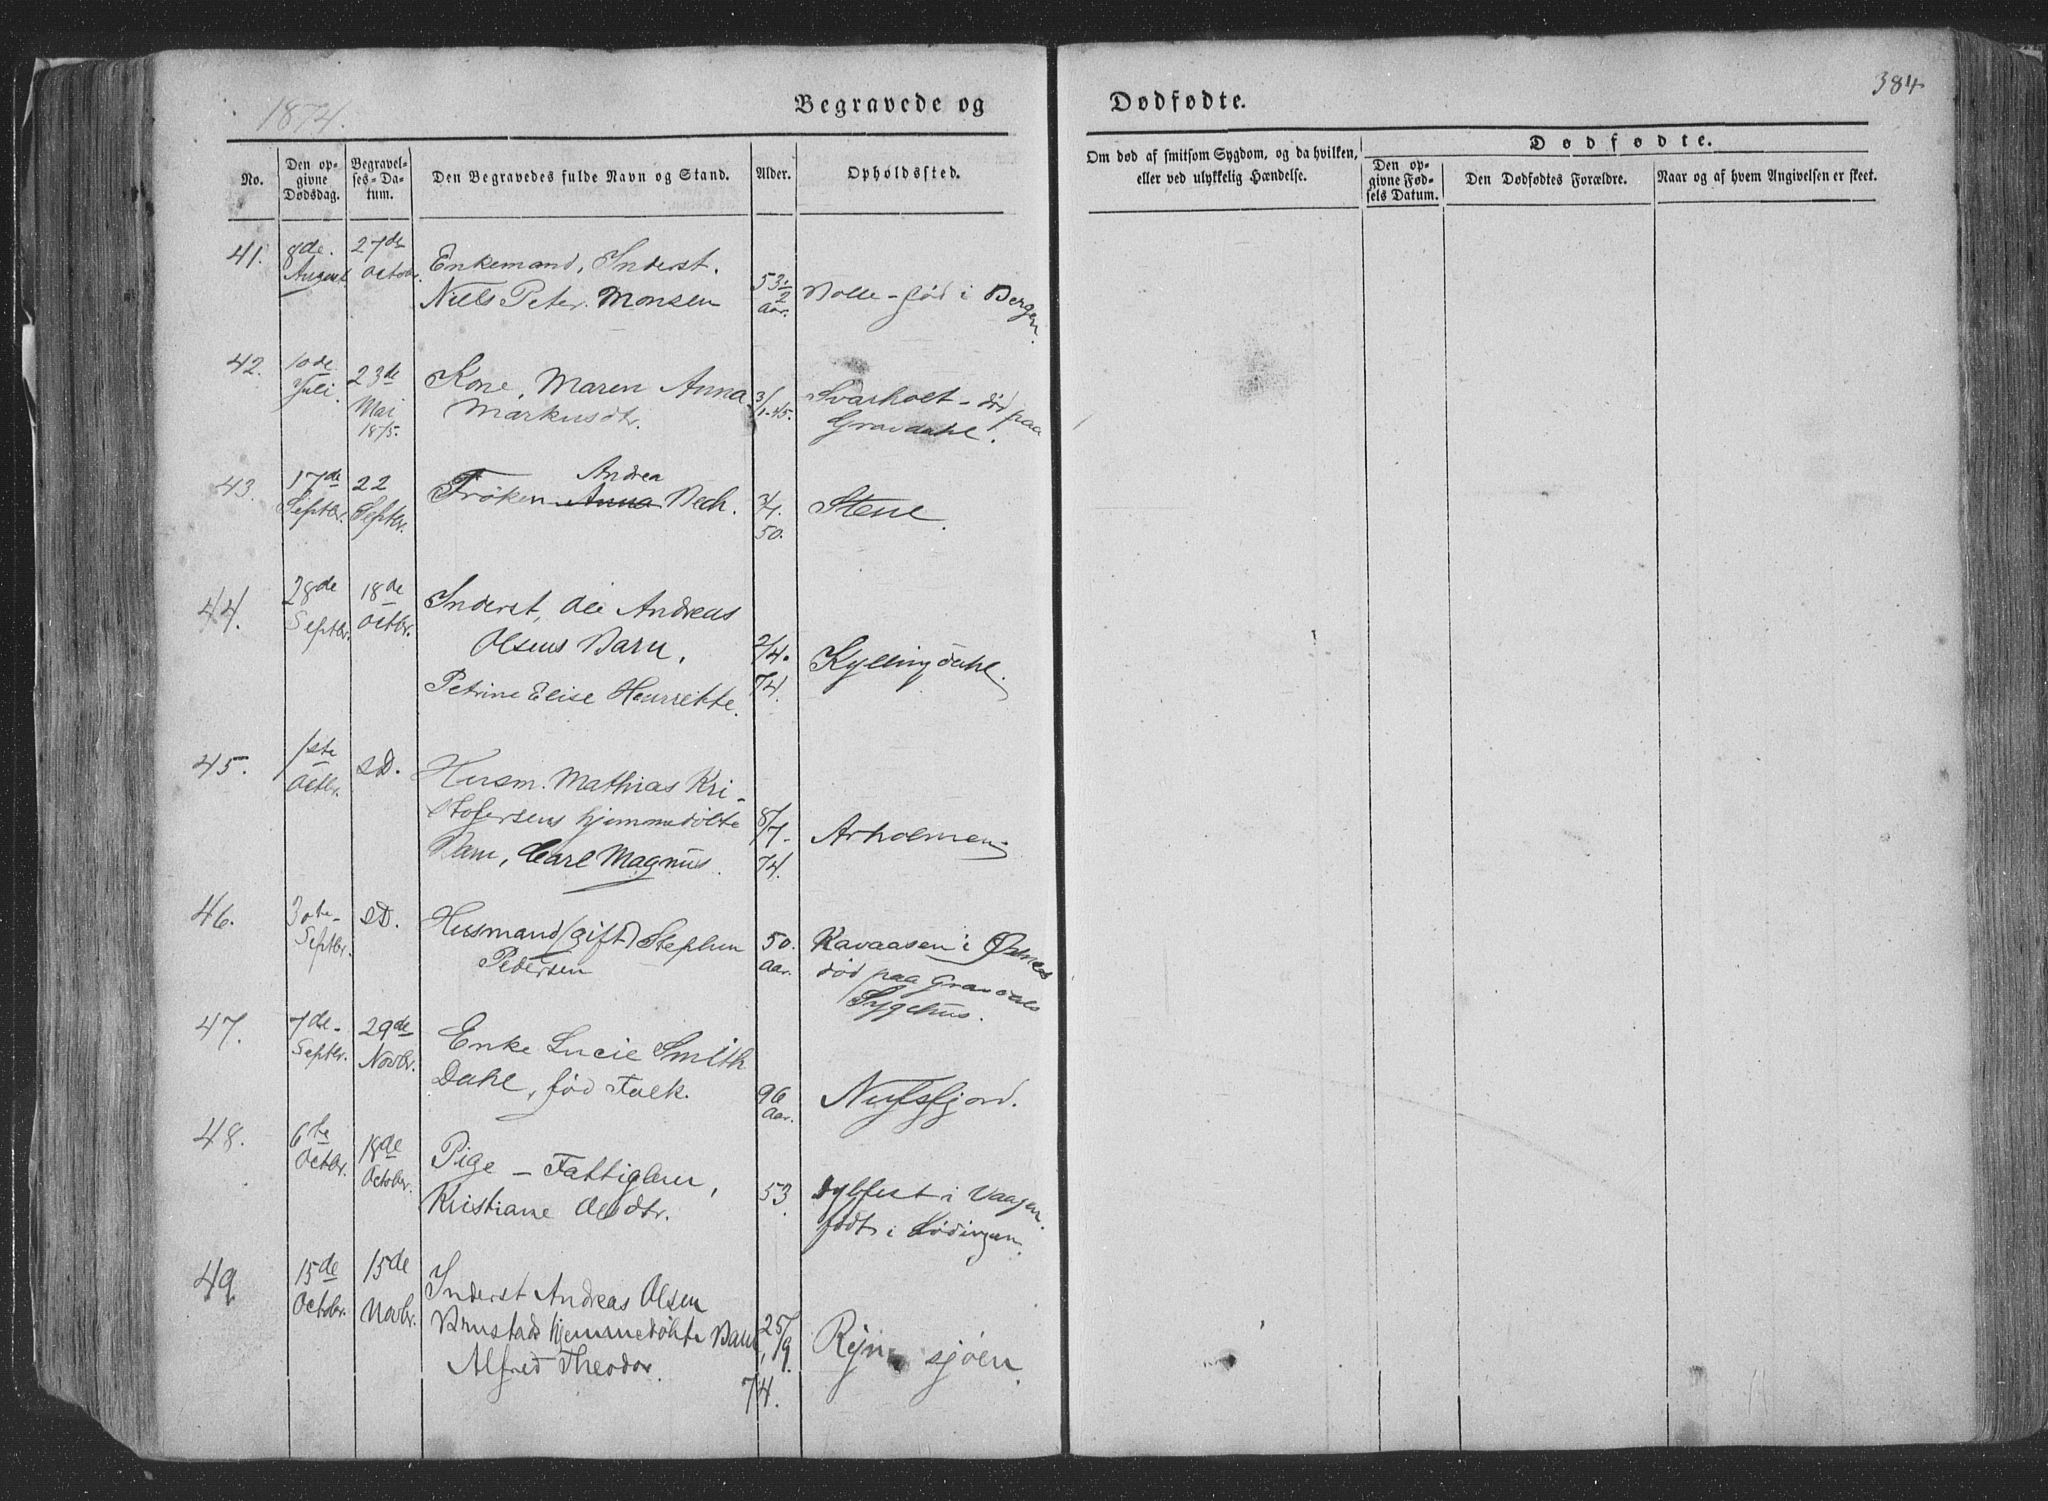 1874.
Begravede og
Dødfødte.
384
No.
Den op-
givne
Dødsdag.
Begravel-
ses-Da-
tum.
Den Begravedes fulde Navn og Stand.
Alder.
Opholdssted.
Om død af smitsom Sygdom, og da hvilken,
eller ved ulykkelig Hændelse.
Dødfødte.
Den op-
givne Fød-
sels Datum.
Den Dødfødtes Forældre.
Naar og af hvem Angivelsen er skeet.
41. 8de 27de Enkemand, Inderst.
August Octobr.
Niels Peter Monsen 53 1/2 Aar. Bolle - fød i Bergen.
42. 10de 23de Kone, Maren Anna 3/1-45. Svarholt - død paa
Juli. Mai Markusdtr. Gravdahl.
1875.
Andrea
43. 17de 22 Frøken Anna Bech. 3/7. Stene.
Septbr. Septbr. 50.
44. 28de 18de Inderst, Ole Andreas
Septbr. Octbr.
Olsens Barn, 2/4. Kyllingdahl.
Petrine Elise Henrikke. 74.
45. 1ste s.D. Husm. Mathias Kri-
Octbr.
stofersens hjemmedøbte 8/7- Arholmen.
Barn, Carl Magnus. 74.
46. 30te- s.D. Husmand (gift) Stephen 50. Kavaasen i Øxnes
Septbr. Pedersen Aar. død paa Gravdals
Sygehus.
47. 7de- 29de Enke Lucie Smith
Septbr. Novbr.
Dahl, fød Falk. 96 Aar. Nufsfjord.
48. 6te 18de Pige - Fattiglem,
Octbr. Octobr.
Kristiane Olsdtr. 53. i Vaagen.
født i Lødingen.
49. 15de 15de Inderst Andreas Olsen
Octobr. Novbr.
Brustads hjemmedøbte Barn, 25/9. sjøen.
Alfred Theodor. 74.